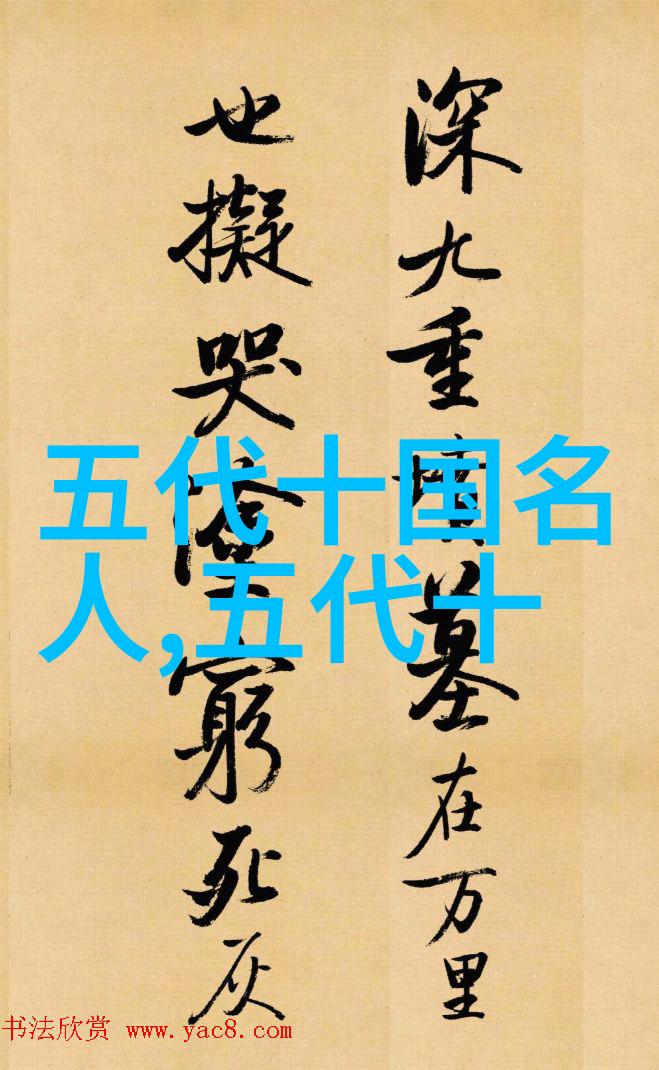 深九重墳墓在万里
也擬哭塗窮死灰
五代十国名
人,五代十
书法欣赏 www.yac8.com